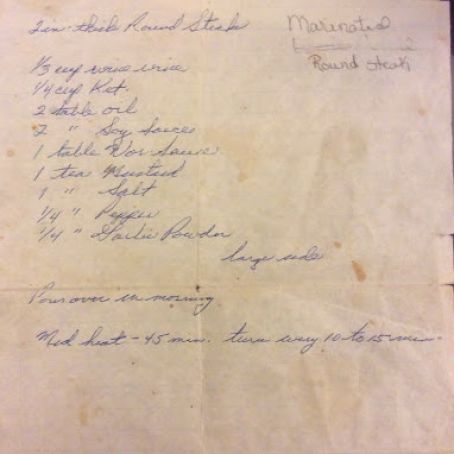 2 in. thick Round Steak
Marinated
Round steak
1/3 cup wine
1/4 cup Ket.
2 table oil
2 " Soy Sauce
1 table Wor. Sauce
1 tea Mustard
1 " Salt
1/4 " Pepper
1/4 " Garlic Powder
large
Pour over in morning
Med heat - 45 min. turn every 10 to 15 min.